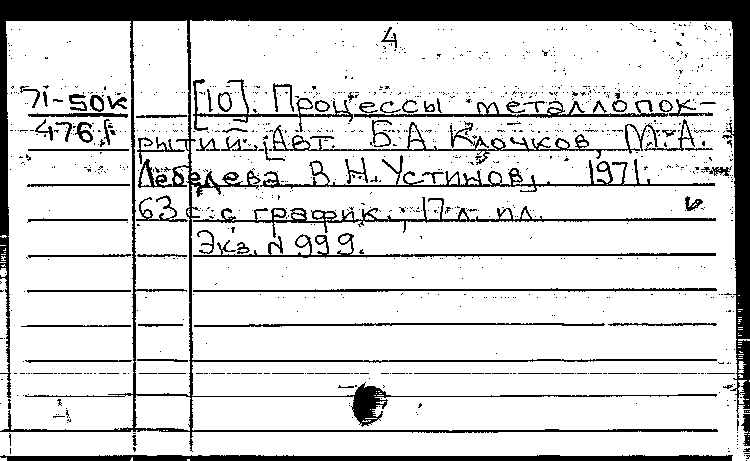 4
71-50к [10]. Процессы металлопок-
476 рытий. [Авт. Б.А. Клочков, М.А.
Лебедева, В.Н. Устинов]. 1971.
63 с. с график.; 17 л. ил.
Экз. N 999.